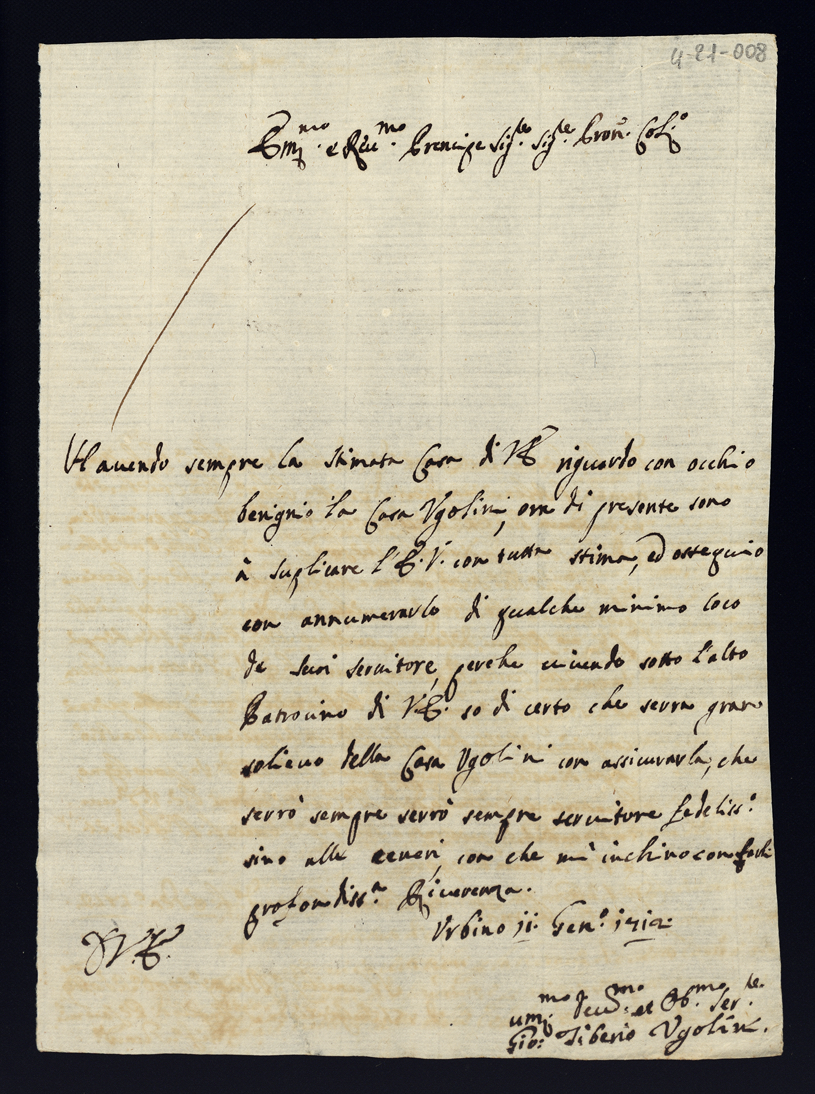 4-21-008
Em.mo e Rev.mo Prencipe Sig.re Sig.re Pron. Col.o
Havendo sempre la stimata Casa di VE riguardo con occhio
benignio la Casa Vgolini, ora di presente sono
à suplicare l'E.V. con tutta stima, ed ossequio
con annumerarlo di qualche minimo loco
de suoi servitore, perche vivendo sotto l'alto
Patrocino di VE. so di certo che serra gran
solieuo della Casa Vgolini con assicurarla, che
serrò sempre serrò sempre servitore fedeliss.o
sino alle ceneri, con che mi inchino con
profondiss.a Riverenza.
Vrbino 11. Gen.o
D V.E.
um.mo deu.mo et Ob.mo Ser.re
Gio: Tiberio Vgolini.